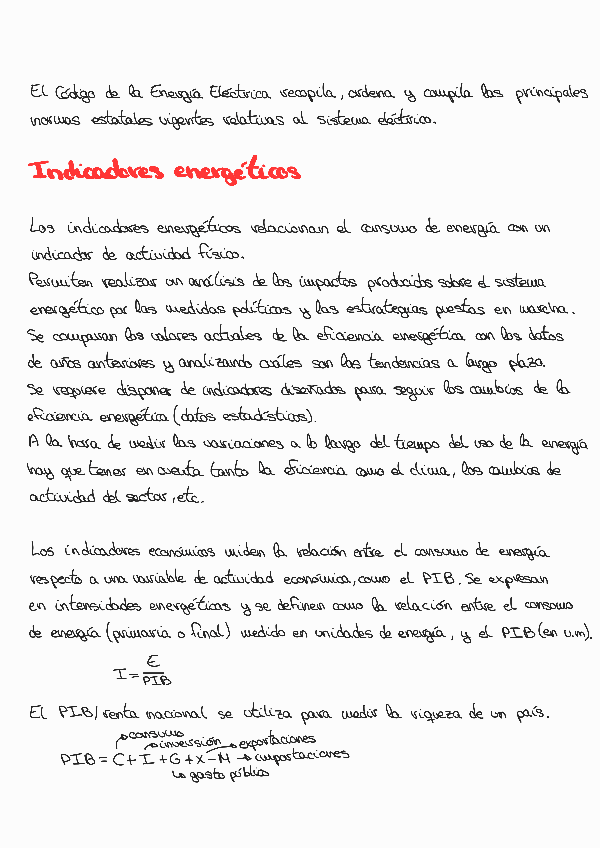 El Código de la Energía Eléctrica recopila, ordena y compila las principales
normas estatales vigentes relativas al sistema eléctrico.
Indicadores energéticos
Los indicadores energéticos relacionan el consumo de energía con un
indicador de actividad físico.
Permiten realizar un análisis de los impactos producidos sobre el sistema
energético por las medidas políticas y las estrategias puestas en marcha.
Se comparan los valores actuales de la eficiencia energética con los datos
de años anteriores y analizando cuáles son las tendencias a largo plazo.
Se requiere disponer de indicadores diseñados para seguir los cambios de la
eficiencia energética (datos estadísticos).
A la hora de medir las variaciones a lo largo del tiempo del uso de la energía
hay que tener en cuenta tanto la eficiencia como el clima, los cambios de
actividad del sector, etc.
Los indicadores económicos miden la relación entre el consumo de energía
respecto a una variable de actividad económica, como el PIB. Se expresan
en intensidades energéticas y se definen como la relación entre el consumo
de energía (primaria o final) medido en unidades de energía, y el PIB (en u.m).
I = E/PIB
El PIB/renta nacional se utiliza para medir la riqueza de un país.
→ consumo
→ inversión → exportaciones
PIB = C + I + G + X - M → importaciones
↳ gasto público